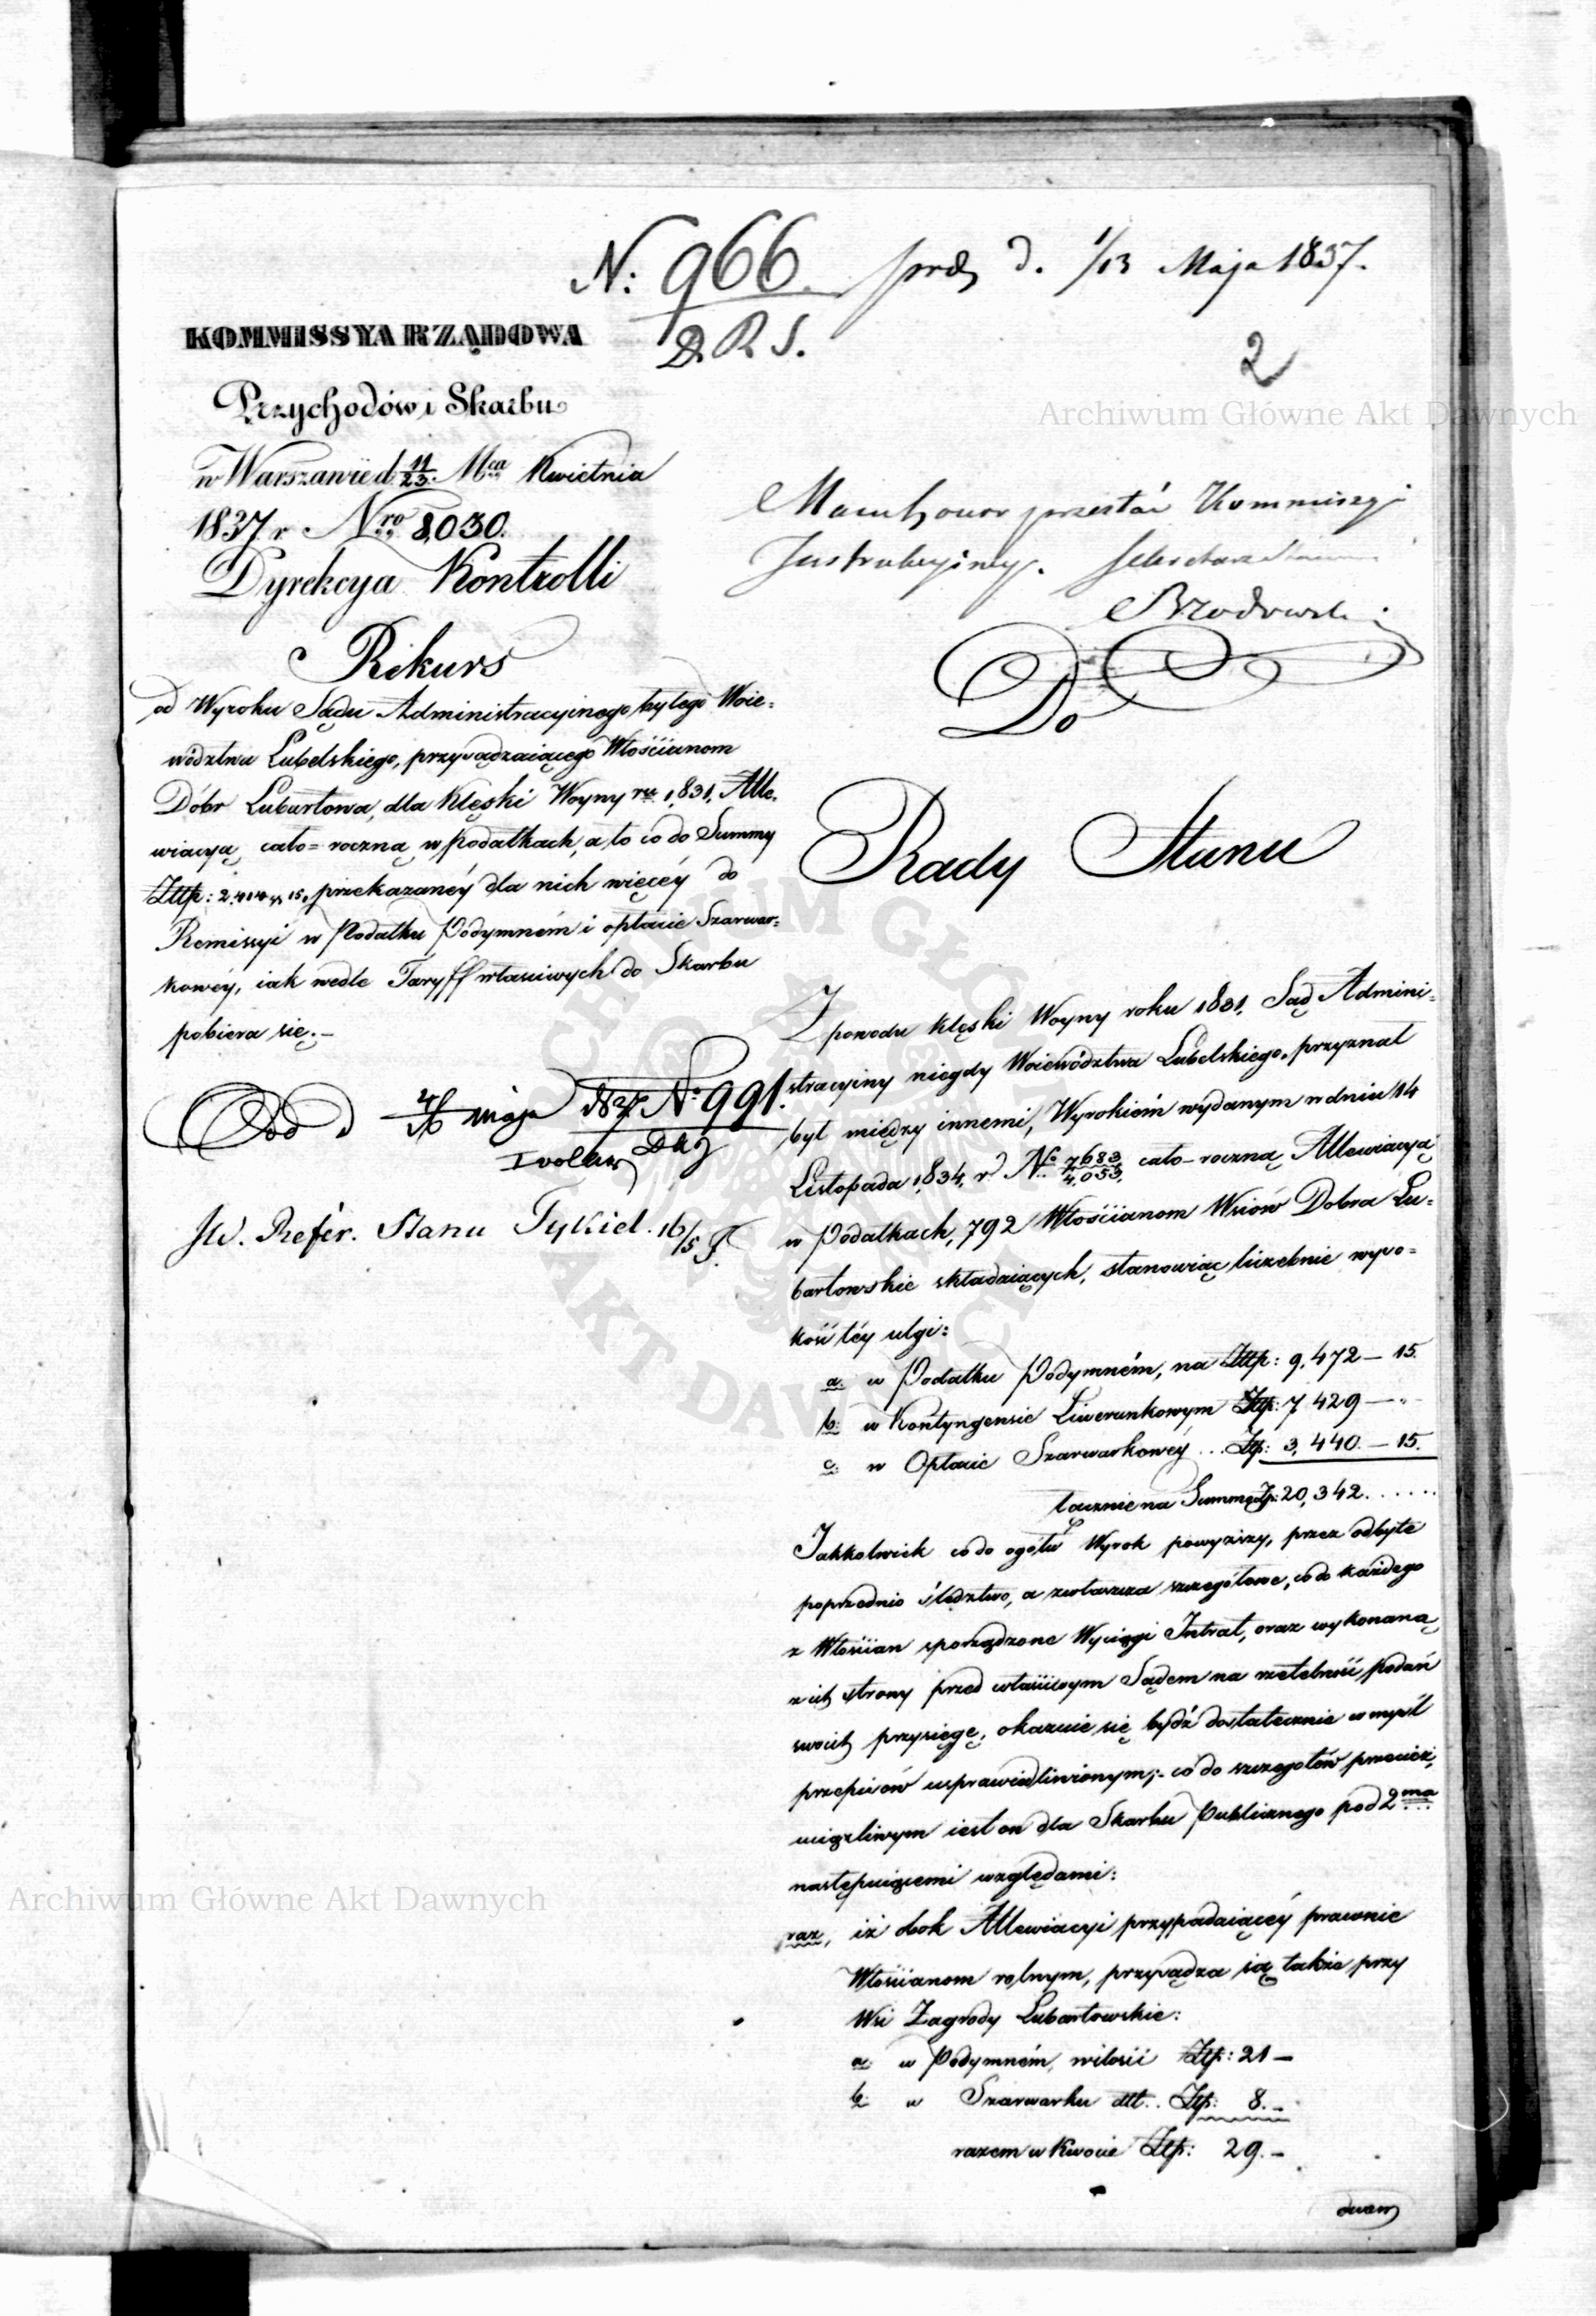 N: 966. prez d. 1/13 Maja 1837.
D. R. S.
2
KOMMISSYA RZĄDOWA
Przychodów i Skarbu
w Warszawie d. 11/23. Mca Kwietnia
1837. r. Nro 8,030.
Dyrekcya Kontrolli
Rekurs
od Wyroku Sądu Administracyinego byłego Woie=
wództwa Lubelskiego, przysądzaiącego Włościanom
Dóbr Lubartowa, dla Klęski Woyny ru 1,831, Alle,
wiacyą cało=roczną w podatkach, a to co do Summy
Złtp: 2,414 gr 15, przekazanéy dla nich więcéy do
Remissyi w Podatku Podymném i opłacie Szarwar=
kowéy, iak wedle Taryff właściwych do Skarbu
pobiera się.—
Od d 4/16 maja 1837 N. 991.
JW. Refer. Stanu Tykiel. 16/5
przesłać Kommissyi
Instrukcyiney.
Brodowski
Do
Rady Stanu
Z powodu Klęski Woyny roku 1831, Sąd Admini=
stracyiny niegdy Woiewództwa Lubelskiego, przyznał
był między innemi, Wyrokiem wydanym w dniu 14
Listopada 1,834, r. No 7683/4,053, cało-roczną Allewiacyą
w Podatkach, 792 Włościanom Wsiów Dobra Lu=
bartowskie składaiących, stanowiąc liczebnie wyso=
kość téy ulgi:
a. w Podatku Podymném, na Złtp: 9,472 — 15.
b. w Kontyngensie Liwerunkowym Złtp: 7 429 — „
c. w Opłacie Szarwarkowéy... Złp: 3,440. — 15.
łącznie na Summę Zp: 20,342......
Jakkolwiek co do ogółu Wyrok powyższy, przez odbyte
poprzednio śledztwo, a zwłaszcza szczegółowe, co do każdego
z Włościan sporządzone Wyciągi Intrat, oraz wykonaną
z ich strony przed właściwym Sądem na rzetelność podań
swoich przysięgę, okazuie się bydź dostatecznie w myśl
przepisów usprawiedliwionym;- co do szczegółów przecież,
uciążliwym iest on dla Skarbu Publicznego pod 2ma
następuiącemi względami:
raz, iż obok Allewiacyi przypadaiącéy prawnie
Włościanom rolnym, przysądza ią także przy
Wsi Zagrody Lubartowskie:
a. w Podymném, wilości Złtp: 21 —
b. w Szarwarku dtt.. Złp: 8. —
razem w Kwocie Złtp: 29. —
Archiwum Główne Akt Dawnych
Archiwum Główne Akt Dawnych
ARCHIWUM GŁÓWNE AKT DAWNYCH